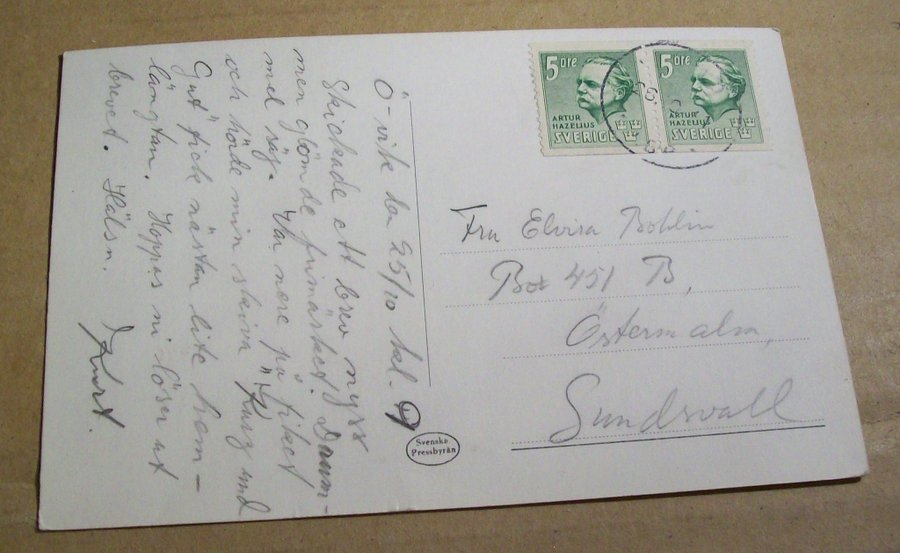 Ö-vik den 25/10 kl. 9
Skickade ett brev nyss
men glömde frimärket. Dumm-
med sig. Var nere på fiket
och hörde min skiva "Kurz und
Gut" fick nästan lite hem-
längtan. Hoppas ni löser ut
brevet. Hälsn.
Kurt.
5 öre
ARTUR
HAZELIUS
SVERIGE
5 öre
ARTUR
HAZELIUS
SVERIGE
Fru Elvira Bohlin
Box 451 B,
Östermalm,
Sundsvall
Svenska
Pressbyrån